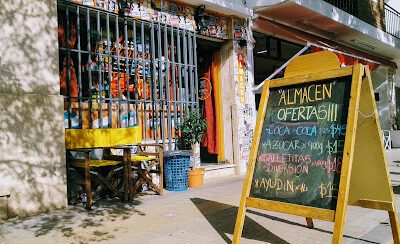 "ALMACEN"
OFERTAS!!!
-COCA-COLA $45
*AZUCAR x900g $
GALLETITAS
DIVERSION $15
*AYUDIN x